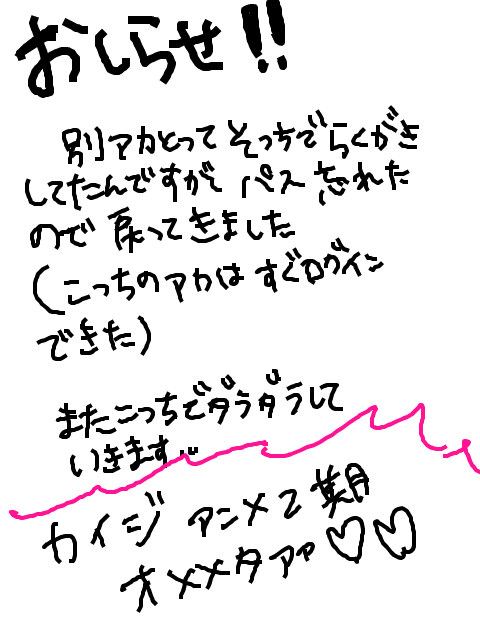 おしらせ!!
別アカとってそっちでらくがき
してたんですが パス忘れた
ので戻ってきました
(こっちのアカはすぐログイン
できた)
またこっちでダラダラして
いきます..
カイジ アンメ2期
オメメタアァ♡♡